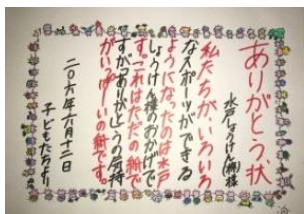 ありがとう状
水戸しょうけん㈱様
私たちが、いろいろ
なスポーツができる
ようになったのは水戸
しょうけん様のおかげで
す。これはただの紙で
すが「ありがとう」の気持
がいっぱーいの紙です。
二〇一六年六月十二日
子どもたちより